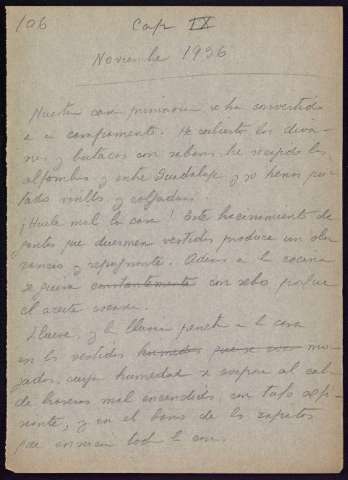 106 Cap IX
Noviembre 1936
Nuestra casa primorosa se ha convertido
en un campamento. He cubierto los diva-
nes y butacas con sabanas, he recogido las
alfombras y entre Guadalupe y yo hemos pue
rtado visillos y colgaduras
¡Huele mal la casa! Este hacinamiento de
gentes que duermen vestidos produce un olor
rancio y repugnante. Además en la cocina
se guisa constantemente con sebo, porque
el aceite escasea.
Llueve, y la lluvia penetra en la casa
en los vestidos humedos que se son mo-
jados, cuya humedad se evapora al calor
de braseros mal encendidos, con tufo asfi-
xiante, y en el barro de los zapatos
que ensucian toda la casa.